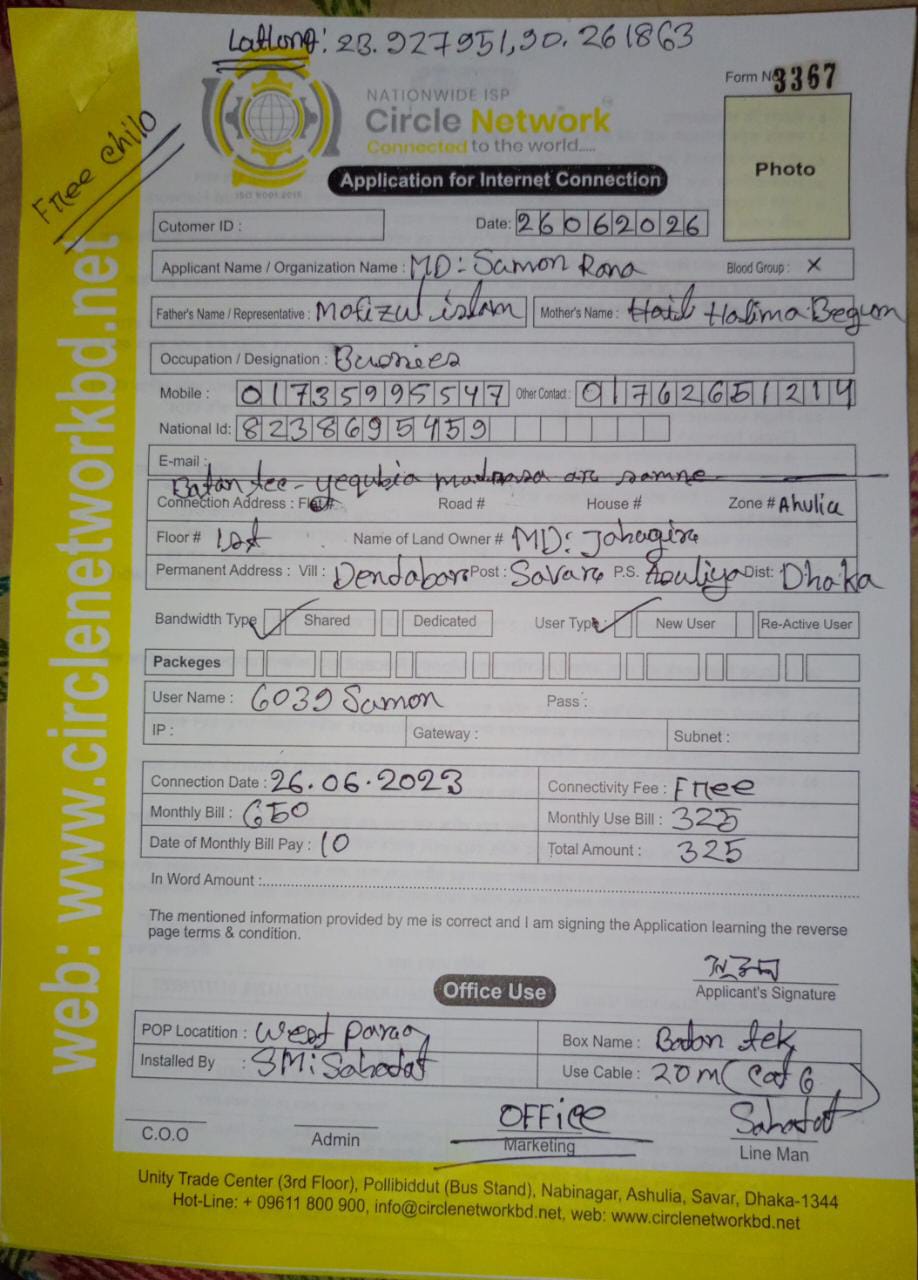 Latlong: 23.927951,90.261863
Form No 3367
NATIONWIDE ISP
Circle Network
Connected to the world.....
ISO 9001:2015
Free chilo
Photo
Application for Internet Connection
Cutomer ID :
Date: 26062026
Applicant Name / Organization Name : MD: Samon Rana Blood Group : X
Father's Name / Representative : Mofizul islam Mother's Name : Halima Begum
Occupation / Designation :
Mobile : 01735995547 Other Contact : 01762651214
National Id: 8238695459
E-mail :
Batan tee - yequbia madrasa ar samne
Connection Address : Flat# Road # House # Zone # Ahulia
Floor # 1st Name of Land Owner # MD: Jahagir
Permanent Address : Vill : Dendabor Post : Savar P.S. Asuliya Dist: Dhaka
Bandwidth Type Shared Dedicated User Type : New User Re-Active User
Packeges
User Name : 6039 Samon Pass :
IP : Gateway : Subnet :
Connection Date : 26.06.2023 Connectivity Fee : Free
Monthly Bill : 650 Monthly Use Bill : 325
Date of Monthly Bill Pay : 10 Total Amount : 325
In Word Amount :
The mentioned information provided by me is correct and I am signing the Application learning the reverse
page terms & condition.
Applicant's Signature
Office Use
POP Locatition : West Para Box Name : Baton tek
Installed By : SM: Sahadat Use Cable : 20m (cat 6
OFFICE Sahadat
C.O.O Admin Marketing Line Man
Unity Trade Center (3rd Floor), Pollibiddut (Bus Stand), Nabinagar, Ashulia, Savar, Dhaka-1344
Hot-Line: + 09611 800 900, info@circlenetworkbd.net, web: www.circlenetworkbd.net
web: www.circlenetworkbd.net